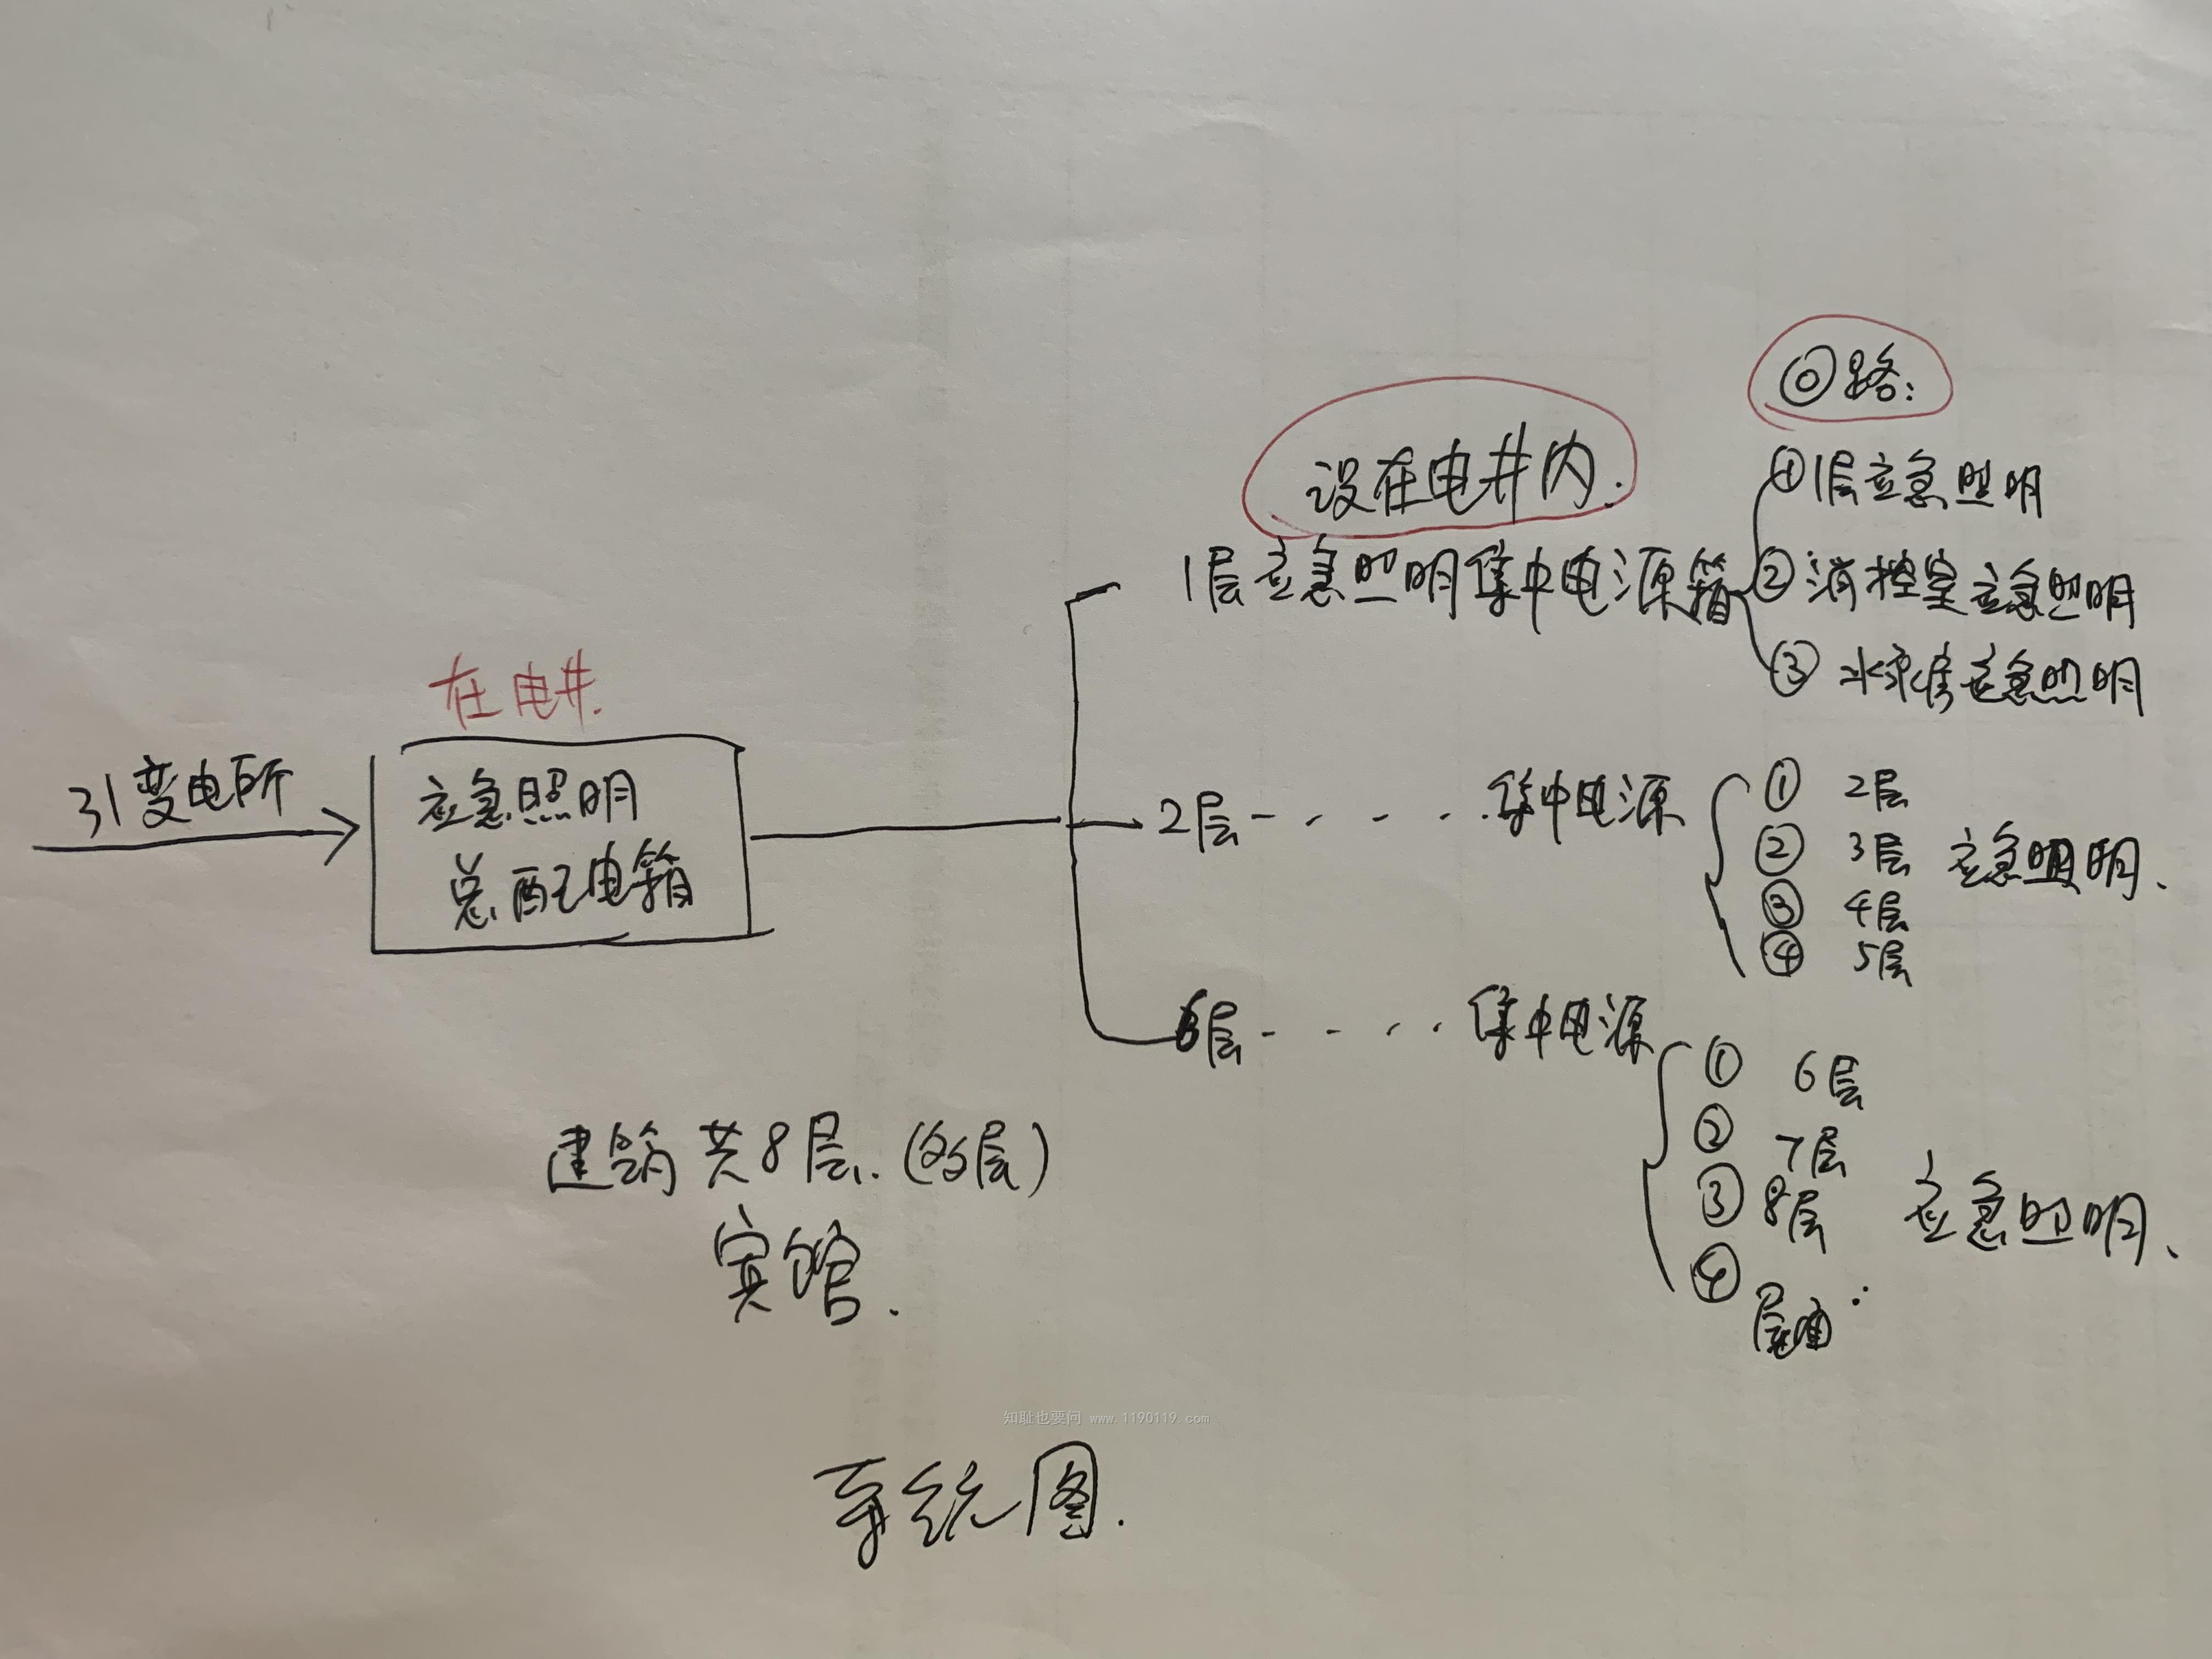 回路：
设在电井内.
①1层应急照明
1层应急照明集中电源箱
②消控室应急照明
③水泵房应急照明
在电井.
引变电所
应急照明
总配电箱
2层- - - - -集中电源
① 2层
② 3层 应急照明.
③ 4层
④ 5层
6层- - - - -集中电源
① 6层
② 7层
③ 8层 应急照明.
④ 屋面
建筑共8层.(多层)
宾馆.
知耻也要问 www.1190119.com
系统图.